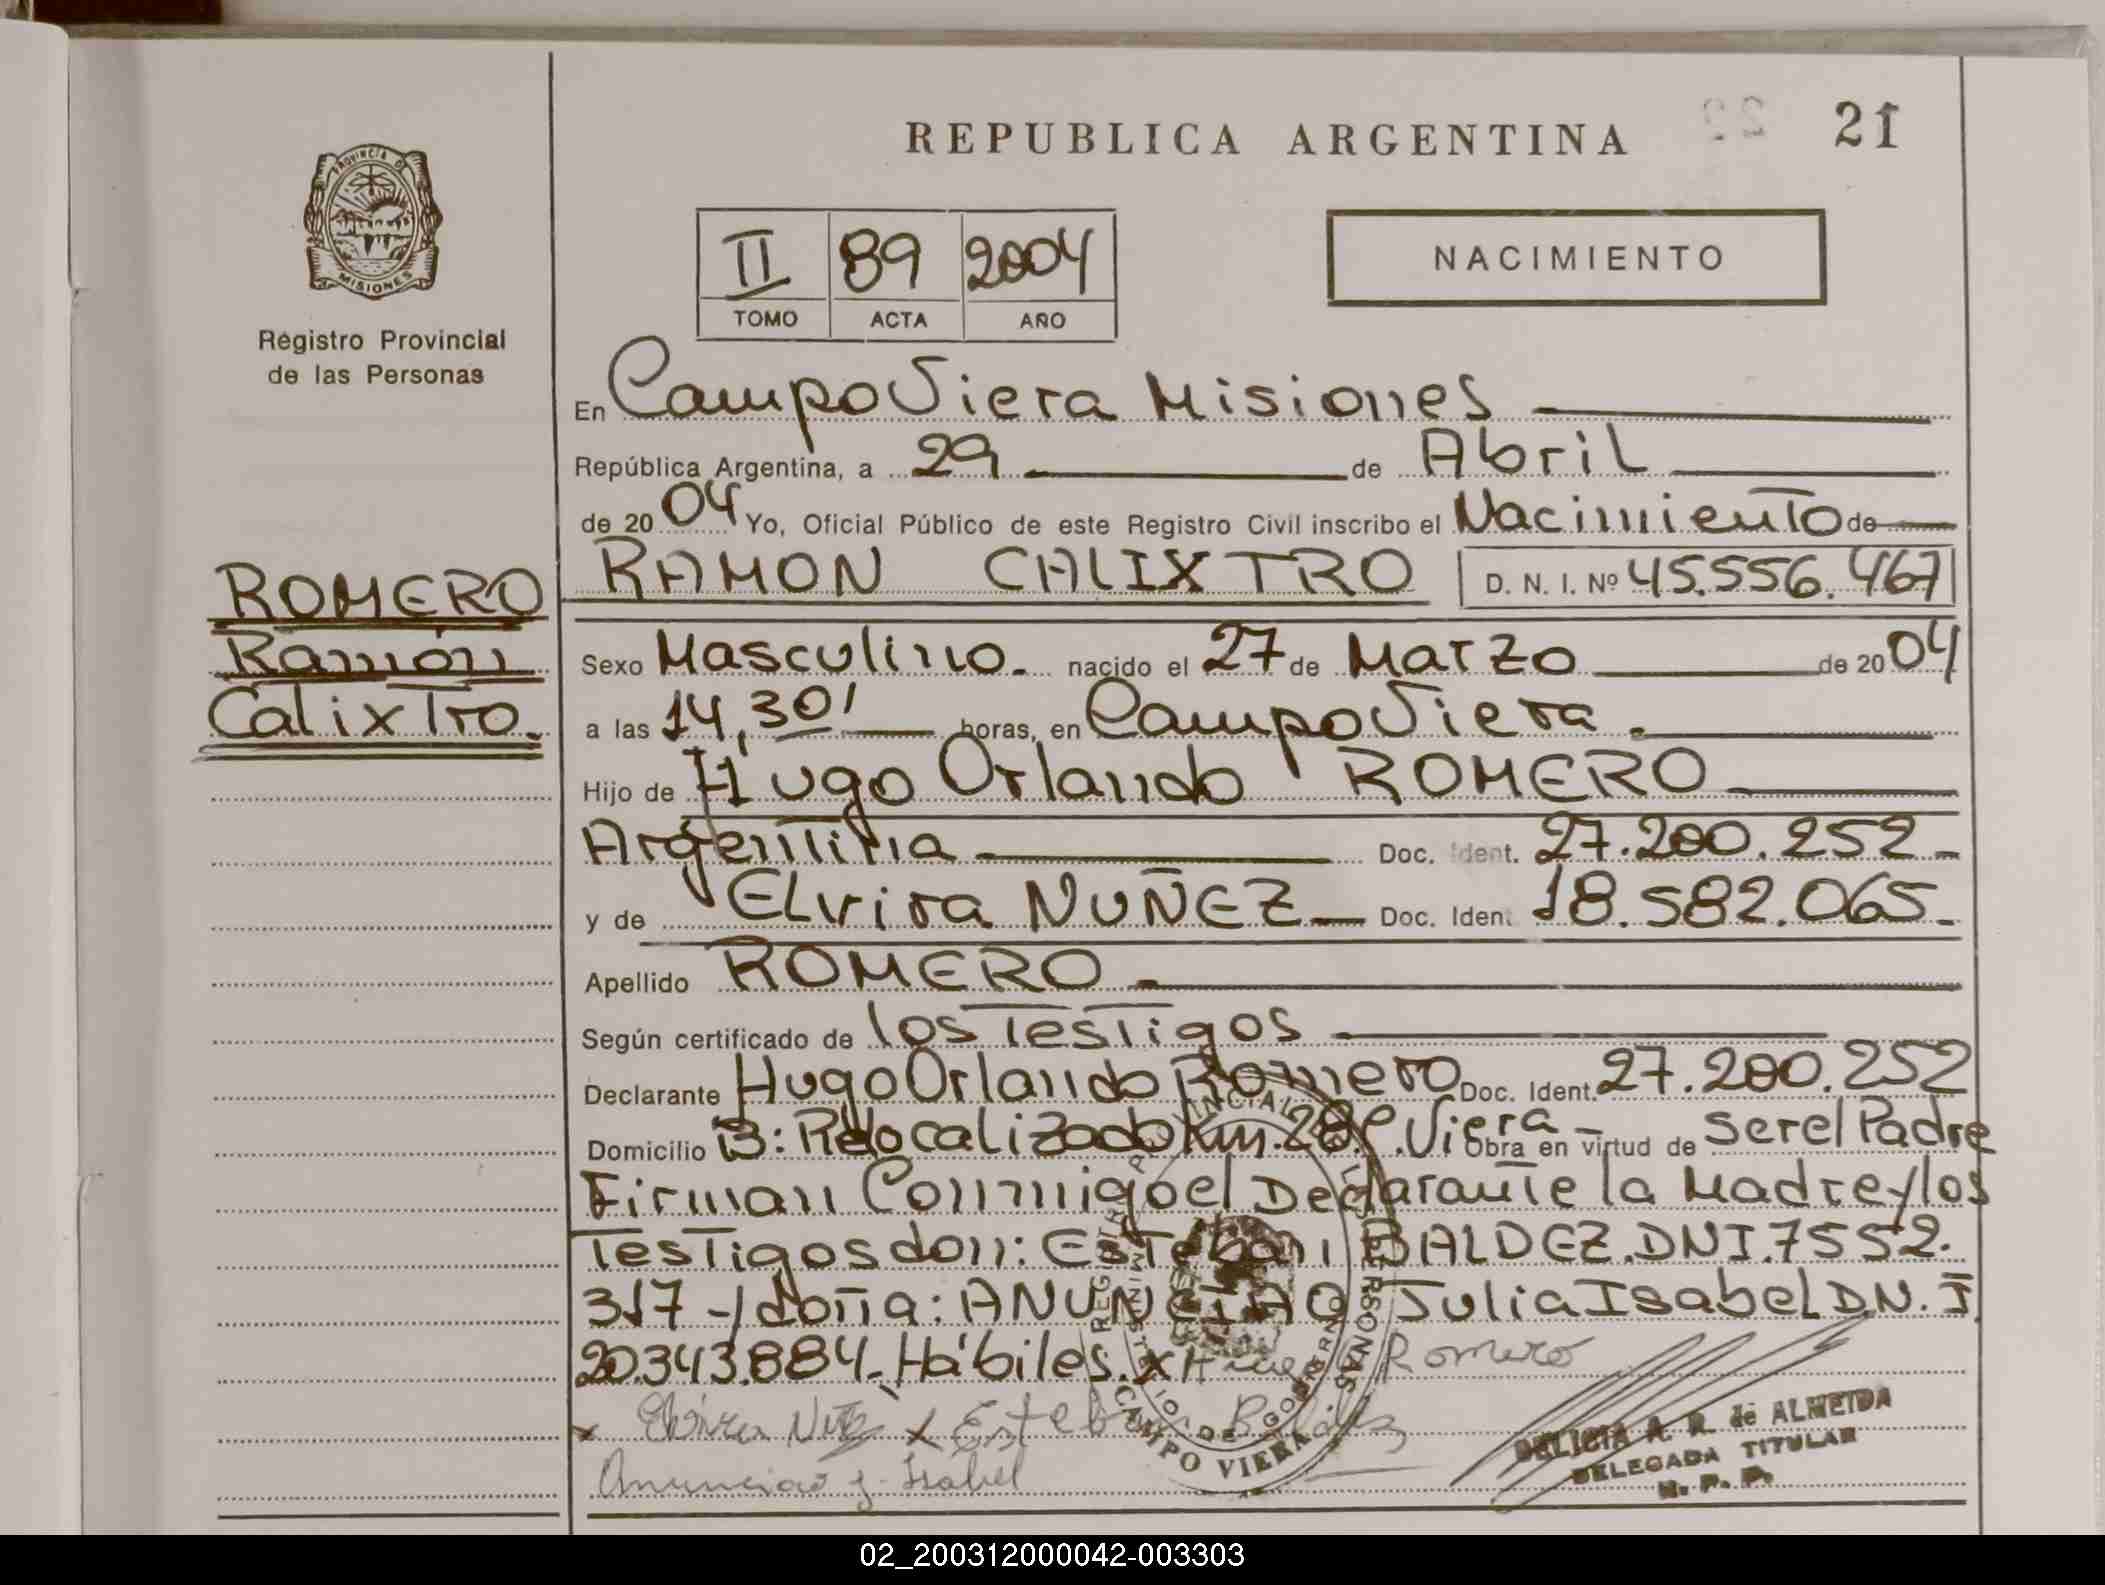 REPUBLICA ARGENTINA 22 21
PROVINCIA DE
MISIONES
Registro Provincial
de las Personas
II 89 2004
TOMO ACTA AÑO
NACIMIENTO
En Campo Viera Misiones
República Argentina, a 29 de Abril
de 2004 Yo, Oficial Público de este Registro Civil inscribo el Nacimiento de
RAMON CALIXTRO D. N. I. Nº 45.556.467
ROMERO
Ramón
Calixtro.
Sexo Masculino. nacido el 27 de Marzo de 2004
a las 14,30' horas, en Campo Viera.
Hijo de Hugo Orlando ROMERO
Argentina Doc. Ident. 27.280.252
y de Elvira NUÑEZ Doc. Iden. 18.582.065
Apellido ROMERO
Según certificado de los Testigos
Declarante Hugo Orlando Romero Doc. Ident. 27.280.252
Domicilio B: Relocalizado Km. 28 C. Viera Obra en virtud de ser el Padre
Firman Conmigo el Declarante la Madre y los
Testigos don: Esteban BALDEZ. DNI. 7552.
317 - y doña: ANUNCIAO Julia Isabel D.N.I
20.343.884. Hábiles. x Hugo Romero
x Elvira x Esteban Baldez
Anunciao J. Isabel
CAMPO VIERA
DELICIA A. R. de ALMEIDA
DELEGADA TITULAR
R. P. P.
02_200312000042-003303